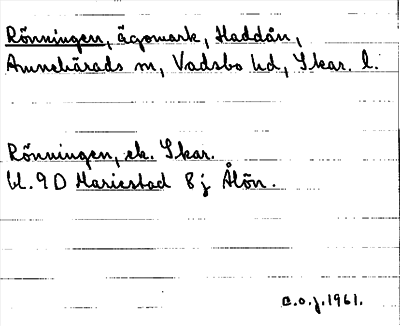 Rönningen, ägomark, Haddån,
Amnehärads sn, Vadsbo hd, Skar. l.
Rönningen, ek. Skar.
bl. 9D Mariestad 8j Ålön.
e.o.j. 1961.